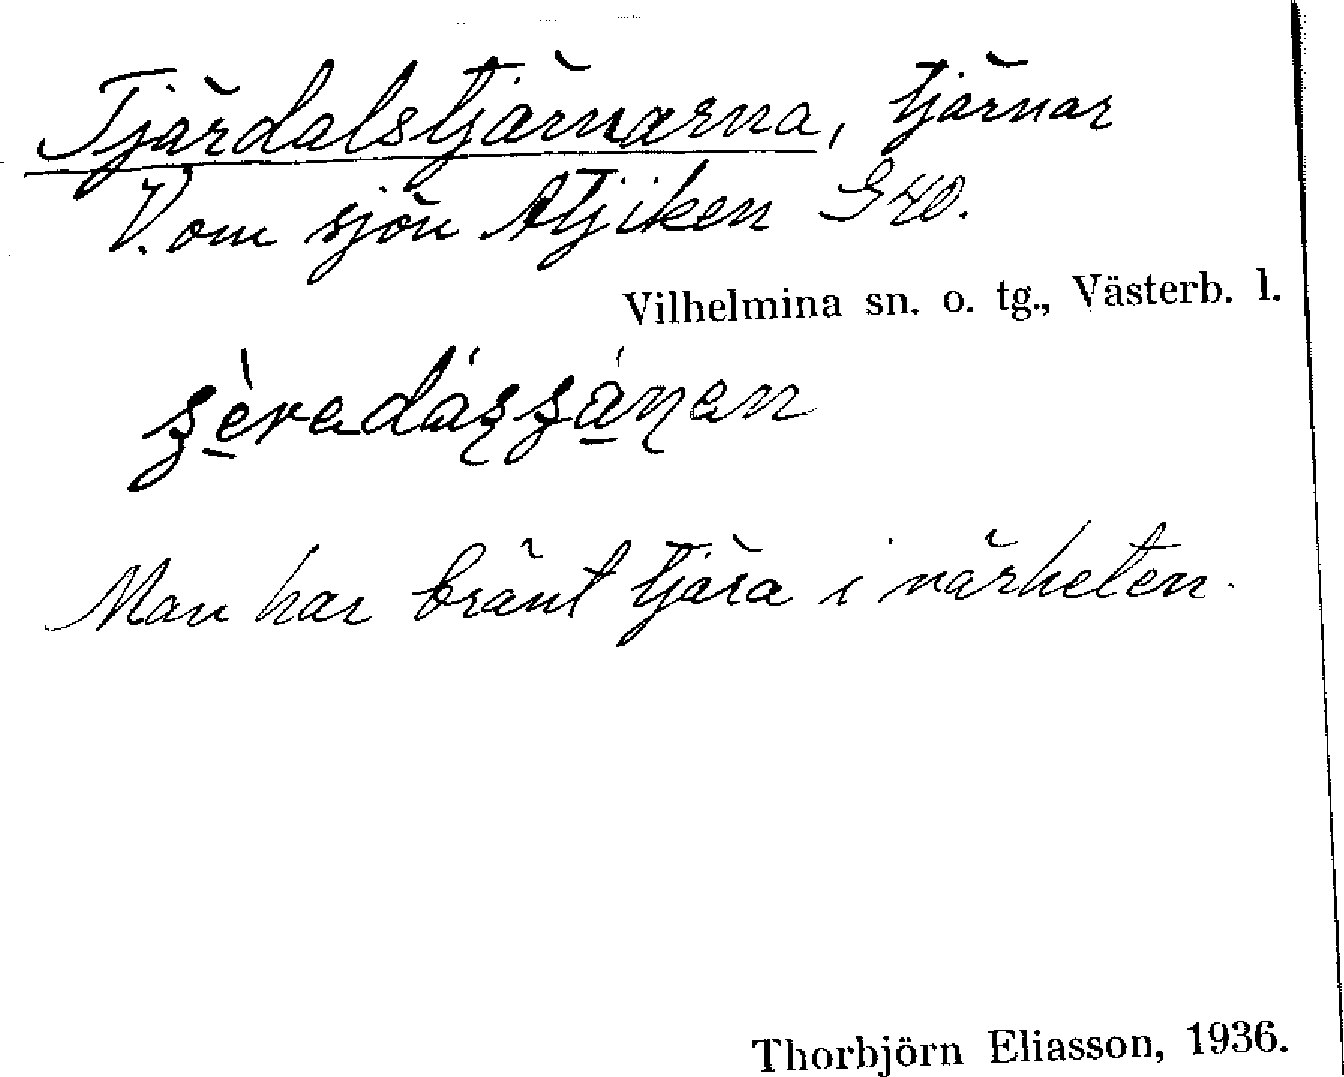 Tjärdalstjärnarna, tjärnar
V. om sjön Atjiken Gko.
Vilhelmina sn. o. tg., Västerb. l.
Man har bränt tjära i närheten.
Thorbjörn Eliasson, 1936.